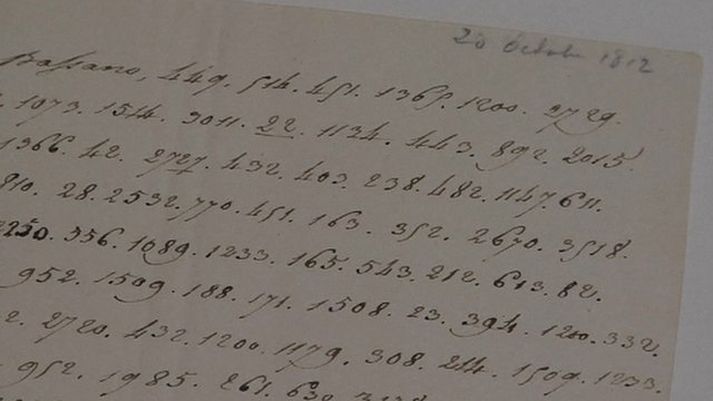 20 Octob 1812
Bassano, 449. 514. 451. 1365. 1200. 2729.
1073. 1514. 3011. 22. 1134. 443. 892. 2015.
1366. 42. 2727. 432. 403. 238. 482. 1147. 611.
810. 28. 2532. 770. 451. 163. 352. 2670. 3518.
2250. 356. 1089. 1233. 165. 543. 212. 613. 82.
952. 1509. 188. 171. 1508. 23. 394. 1200. 332.
2720. 432. 1200. 1179. 308. 214. 1509. 1233.
952. 1985. 261.